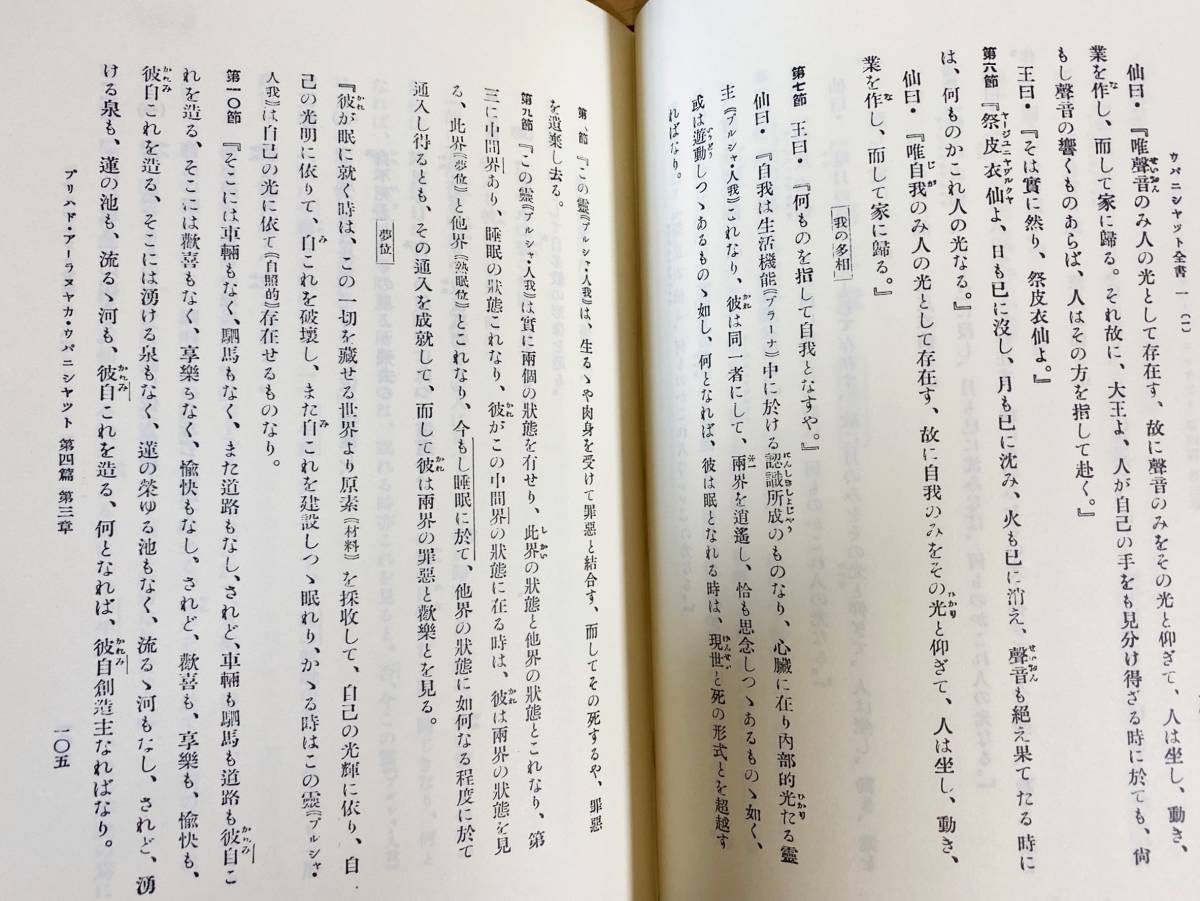 ウパニシャット全書 一 (一)
仙曰・『唯聲音のみ人の光として存在す、故に聲音のみをその光と仰ぎて、人は坐し、動き、
業を作し、而して家に歸る。それ故に、大王よ、人が自己の手をも見分け得ざる時に於ても、尙
もし聲音の響くものあらば、人はその方を指して赴く。』
王曰・『そは實に然り、祭皮衣仙よ。』
第六節 『祭皮衣仙よ、日も已に沒し、月も已に沈み、火も已に消え、聲音も絶え果てたる時に
は、何ものかこれ人の光なる。』
仙曰・『唯自我のみ人の光として存在す、故に自我のみをその光と仰ぎて、人は坐し、動き、
業を作し、而して家に歸る。』
我の多相
第七節 王曰・『何ものを指して自我となすや。』
仙曰・『自我は生活機能《プラーナ》中に於ける認識所成のものなり、心臟に在り內部的光たる靈
主《プルシャ・人我》これなり、彼は同一者にして、兩界を逍遙し、恰も思念しつゝあるものゝ如く、
或は遊動しつゝあるものゝ如し、何となれば、彼は眠となれる時は、現世と死の形式とを超越す
ればなり。
第 節 『この靈《プルシャ・人我》は、生るゝや肉身を受けて罪惡と結合す、而してその死するや、罪惡
を遺棄し去る。
第九節 『この靈《プルシャ・人我》は實に兩個の狀態を有せり、此界の狀態と他界の狀態とこれなり、第
三に中間界あり、睡眠の狀態これなり、彼がこの中間界の狀態に在る時は、彼は兩界の狀態を見
る、此界《夢位》と他界《熟眠位》とこれなり、今もし睡眠に於て、他界の狀態に如何なる程度に於て
通入し得るとも、その通入を成就して、而して彼は兩界の罪惡と歡樂とを見る。
夢位
『彼が眠に就く時は、この一切を藏せる世界より原素《材料》を採收して、自己の光輝に依り、自
己の光明に依りて、自これを破壞し、また自これを建設しつゝ眠れり、かゝる時はこの靈《プルシャ・
人我》は自己の光に依て《自照的》存在せるものなり。
第一〇節 『そこには車輛もなく、駟馬もなく、また道路もなし、されど、車輛も駟馬も道路も彼自こ
れを造る、そこには歡喜もなく、享樂もなく、愉快もなし、されど、歡喜も、享樂も、愉快も、
彼自これを造る、そこには湧ける泉もなく、蓮の榮ゆる池もなく、流るゝ河もなし、されど、湧
ける泉も、蓮の池も、流るゝ河も、彼自これを造る、何となれば、彼自創造主なればなり。
ブリハド・アーラヌヤカ・ウパニシャット 第四篇 第三章
一〇五